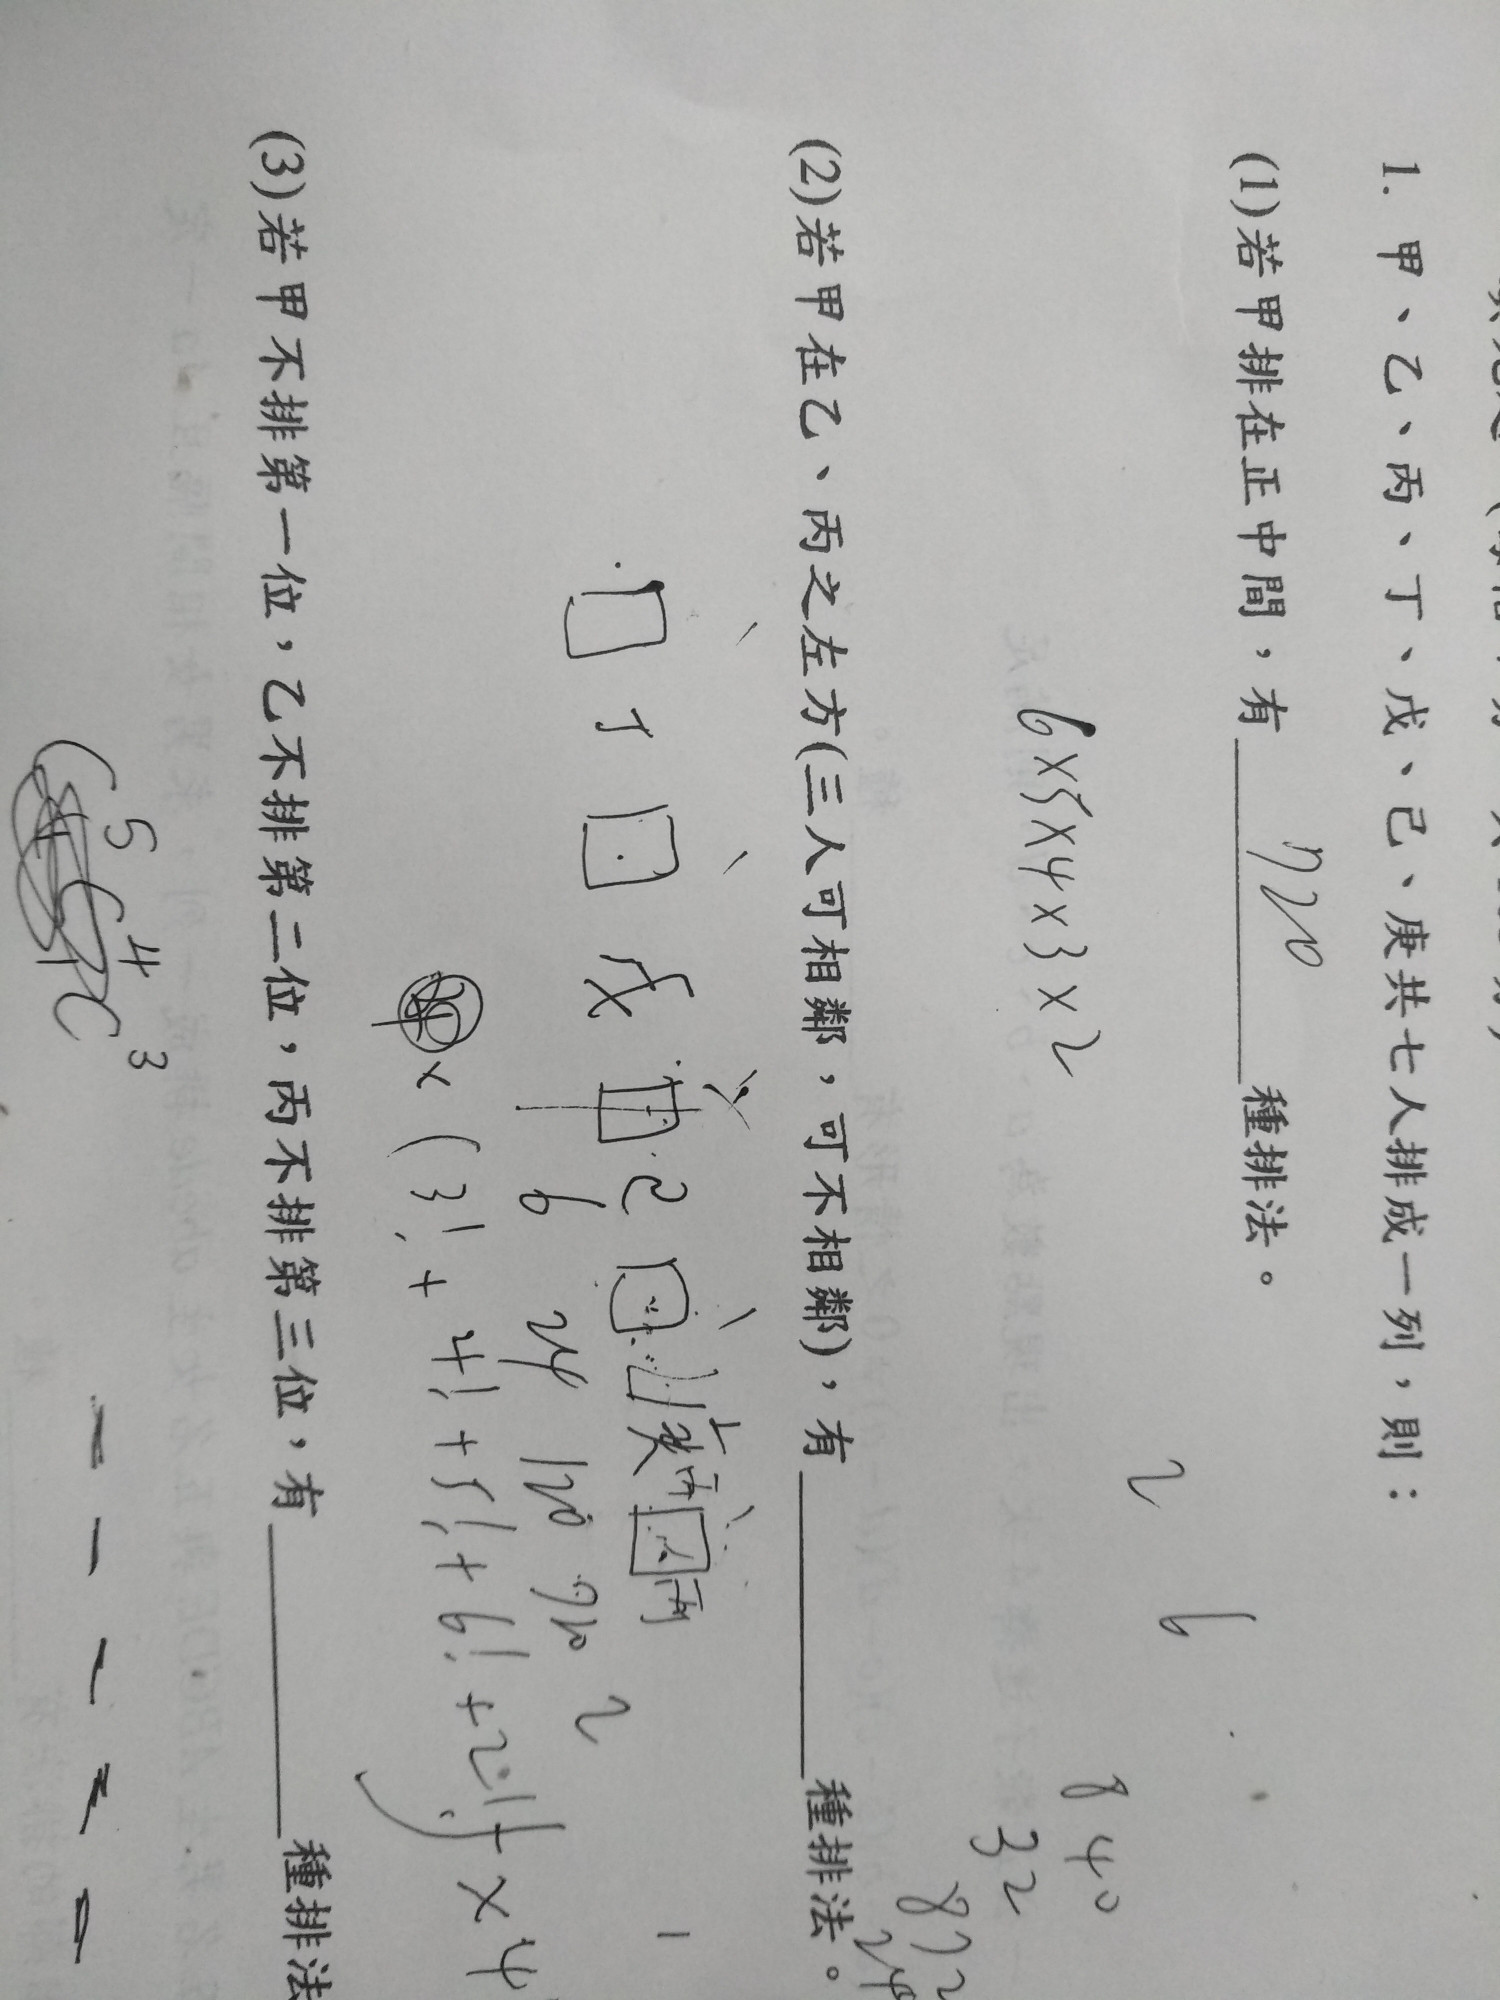 1. 甲、乙、丙、丁、戊、己、庚共七人排成一列，則：
(1)若甲排在正中間，有 720 種排法。
6×5×4×3×2
2 6
840
32
872
24
(2)若甲在乙、丙之左方(三人可相鄰，可不相鄰)，有 種排法。
丁 戊 2 庚 丙
丙
6 24 120 720 2
×(3!+4!+5!+6!+2!)×4!
(3)若甲不排第一位，乙不排第二位，丙不排第三位，有 種排法
C 5 C 4 C 3